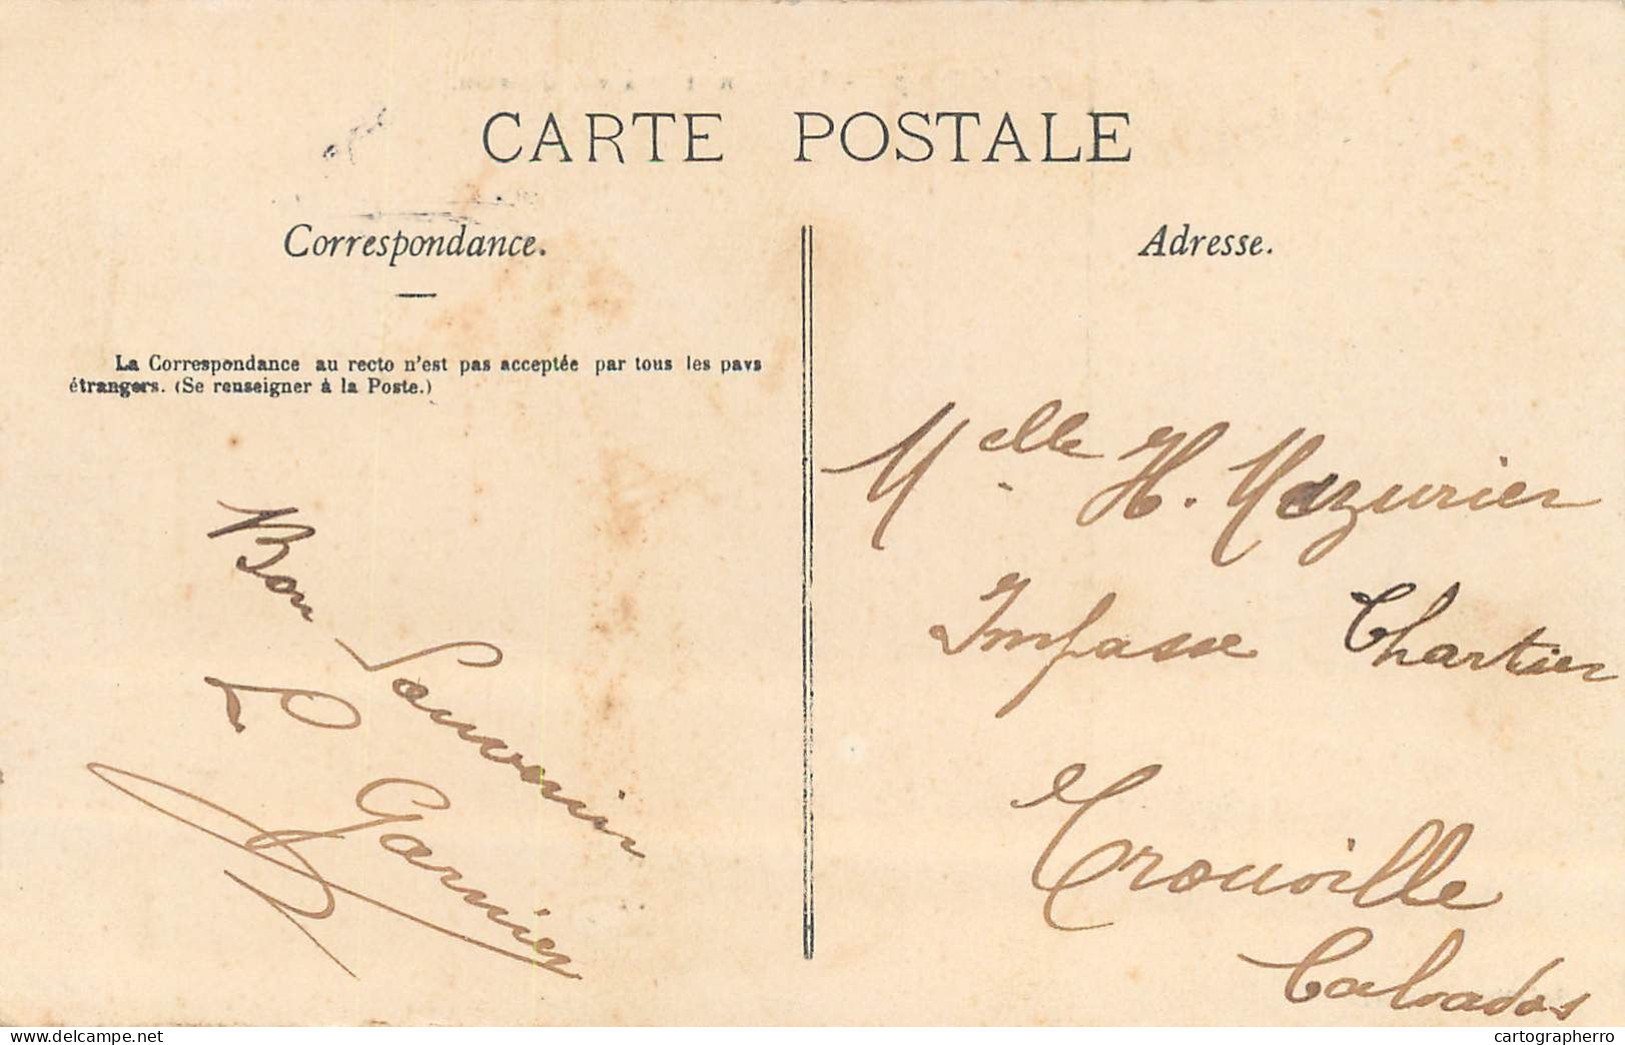 CARTE POSTALE
Correspondance.
La Correspondance au recto n'est pas acceptée par tous les pays
étrangers. (Se renseigner à la Poste.)
Bon Souvenir
L Garnier
Adresse.
Melle H. Mazurier
Impasse Chartier
Trouville
Calvados
cartographerro